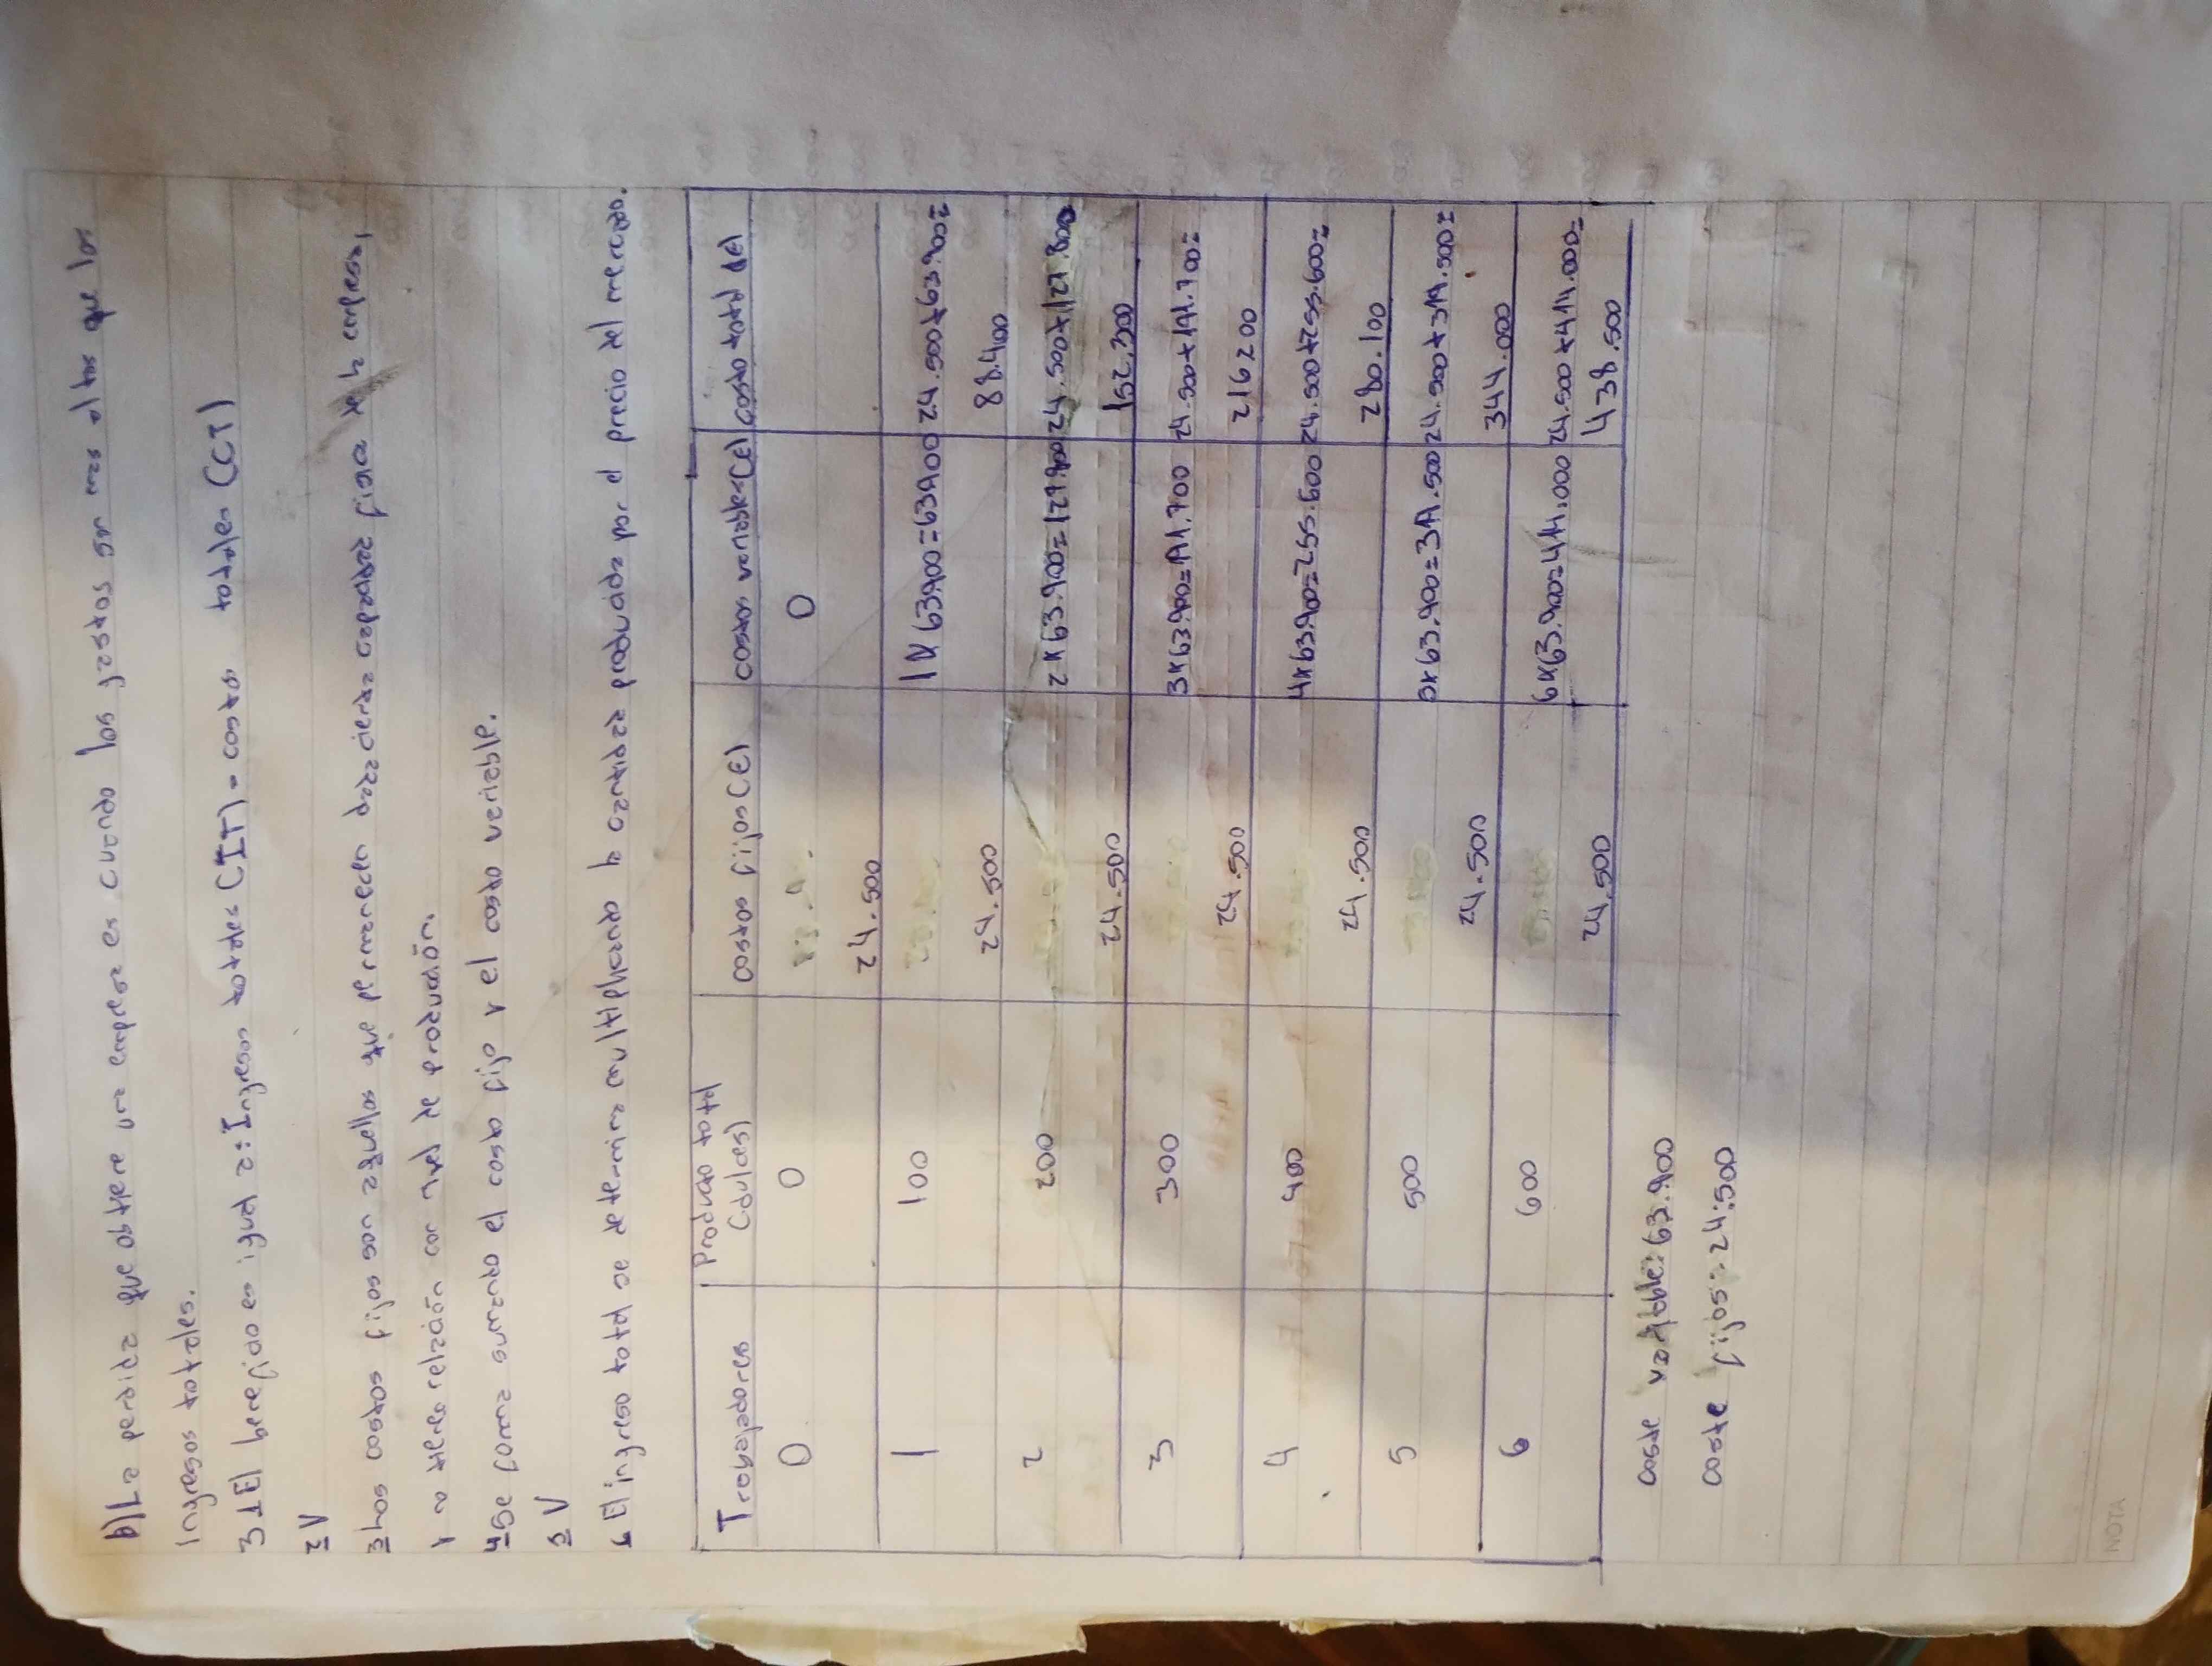 b) La perdida que obtiene una empresa es cuando los gastos son mas altos que los
Ingresos totales.
3 1 El beneficio es igual a: Ingresos totales (IT) - costos totales (CT)
2 V
3 Los costos fijos son aquellos que permanecen para cierta capacidad fisica de la empresa,
y no tienen relación con nivel de producción.
4 Se forma sumando el costo fijo y el costo variable.
5 V
6 El ingreso total se determina multiplicando la cantidad producida por el precio del mercado.
Trabajadores Producto total (dulces) costos fijos (€) costos variables (€) costo total (€)
0 0 24.500 0
1 100 24.500 1x 63.900=63.900 24.500+63.900= 88.400
2 200 24.500 2x63.900=127.800 24.500+127.800 152.300
3 300 24.500 3x63.900=191.700 24.500+191.700= 216200
4 400 24.500 4x63.900=255.600 24.500+255.600= 280.100
5 500 24.500 5x63.900=319.500 24.500+319.500= 344.000
6 600 24.500 6x63.900=414.000 24.500+414.000= 438.500
coste variable: 63.900
coste fijos: 24.500
NOTA